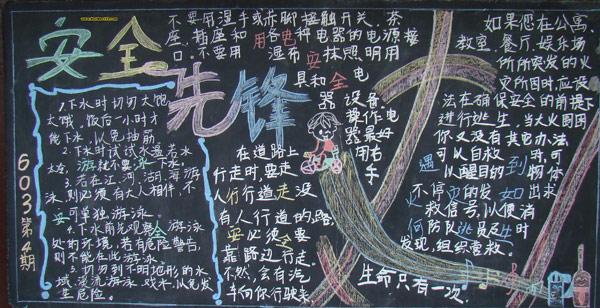 安全先锋
603第4期
1.下水时切勿太饱
太饿，饭后一小时才
能下水，以免抽筋
2.下水时试试水温，若水
太冷，就不要下水。
3.若在江、河、湖、海游
泳，则必须有大人相伴，不
可单独游泳。
4.下水前先观察游泳
处的环境，若有危险警告，
则不能在此游泳。
5.切勿到不明地形的水
域、深流游泳、戏水，以免发
生危险。
不要用湿手或赤脚接触开关、
座、插座和用各电种电器的电源接
口，不要用湿布安抹照明用
具和全电
器设备，
操作电
器最好
用右
手
在道路上
行走时，要走
人行行道走没
有人行道的路，
安必须要全
靠路边行走。
不然，会有汽
车向你行驶来
如果您在公寓、
教室、餐厅、娱乐场
所所突发的火
灾所困时，应设
法在确保安全的前提下
进行逃生，当大火围困
你又没有其它办法
可以自救时，可
以醒目的到物体
遇
不停灾的发如出求
救信号，以便消
何防队逃员及生时
发现，组织营救。
生命只有一次